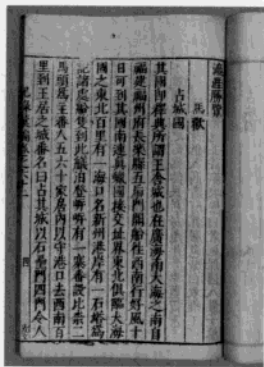 瀛涯勝覽
馬歡
占城國
其國即釋典所謂王舍城也在廣海南大海之南自
福建福州府長樂縣五虎門開船往西南行好風十
日可到其國南連真臘國接交趾界東北俱臨大海
國之東北百里有一海口名新州港岸有一石塔為
記諸處船隻到此艤泊登岸岸有一寨番設比柰二
馬頭為主番人五六十家居內以守港口去西南百
里到王居之城番名曰占其城以石壘門四門令人
紀錄彙編卷之六十二 四